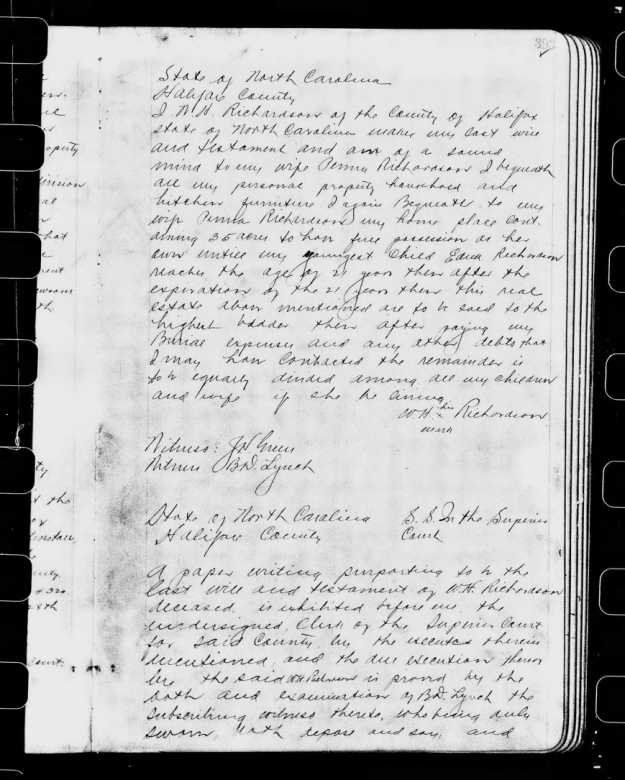 State of North Carolina
Halifax County
I W.H. Richardson of the County of Halifax
state of North Carolina makes my last will
and testament and am of a sound
mind to my wife Penny Richardson I bequeath
all my personal property household and
kitchen furniture I again Bequeath to my
wife Penna Richardson my home place cont-
aining 35 acres to have free possession as her
own untill my youngest Child Edna Richardson
reaches the age of 21 years then after the
expiration of the 21 years then this real
estate above mentioned are to be sold to the
highest bidder then after paying my
Burial expenses and any other debts that
I may have Contracted the remainder is
to be equally divided among all my children
and wife if she be living
W.H. his x Richardson
mark
Witness: J.W. Green
Witness B.D. Lynch
State of North Carolina S.S. In the Superior
Halifax County Court
A paper writing purporting to be the
last will and testament of W.H. Richardson
deceased, is exhibited before me, the
undersigned, Clerk of the Superior Court
for said County, by the executor therein
mentioned, and the due execution thereof
by the said W.H. Richardson is proved by the
oath and examination of B.D. Lynch the
subscribing witness thereto, who being duly
sworn, doth depose and say, and